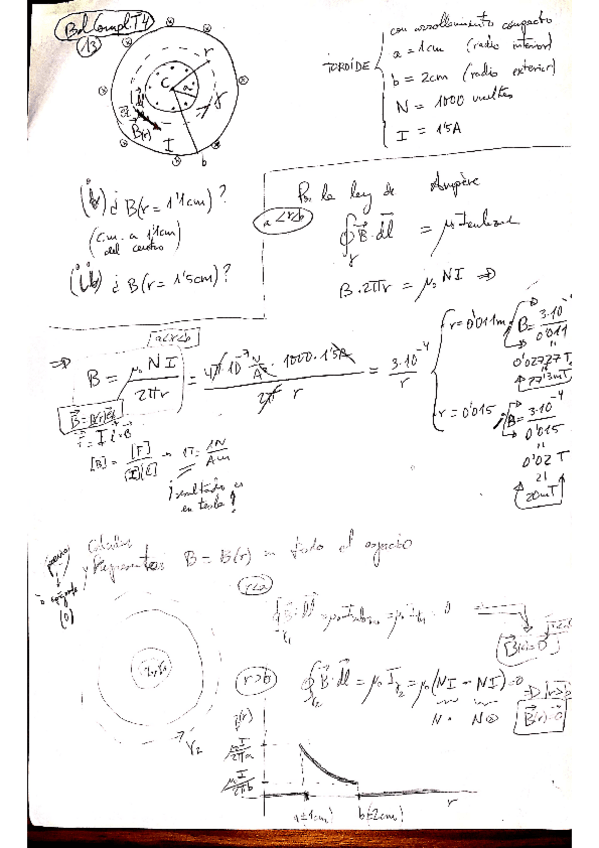 Bol. Compl. T4
13
TOROIDE
con arrollamiento compacto
a = 1cm (radio interior)
b = 2cm (radio exterior)
N = 1000 vueltas
I = 1'5A
C
a
r
γ
B(r)
I
b
¿B(r = 1'1cm)?
(cm. a 1'1cm
del centro)
¿B(r = 1'5cm)?
a<r<b
Por la ley de Ampère
∮γ B·dl = μ₀ I
B·2πr = μ₀ NI ⇒
a<r<b
⇒ B = μ₀NI / 2πr = 4π 10⁻⁷ N/A² · 1000 · 1'5A / 2π r = 3·10⁻⁴ / r
r = 0'011m
B = 3·10⁻⁴ / 0'011
"
0'02727 T
27'3mT
r = 0'015
B = 3·10⁻⁴ / 0'015
"
0'02 T
20mT
[B] = [F] / [I][L] → 1T = 1N / Am
¡resultado es
en tesla!
Calcular
y Representar B = B(r) en todo el espacio
r<a
(0)
r>b
∮γ₂ B·dl = μ₀ Iγ₂ = μ₀(NI - NI) = 0 ⇒ r>b
N· N⊗
B(r)=0
γ₂
μI / 2πa
μI / 2πb
a=1cm
b=2cm
r